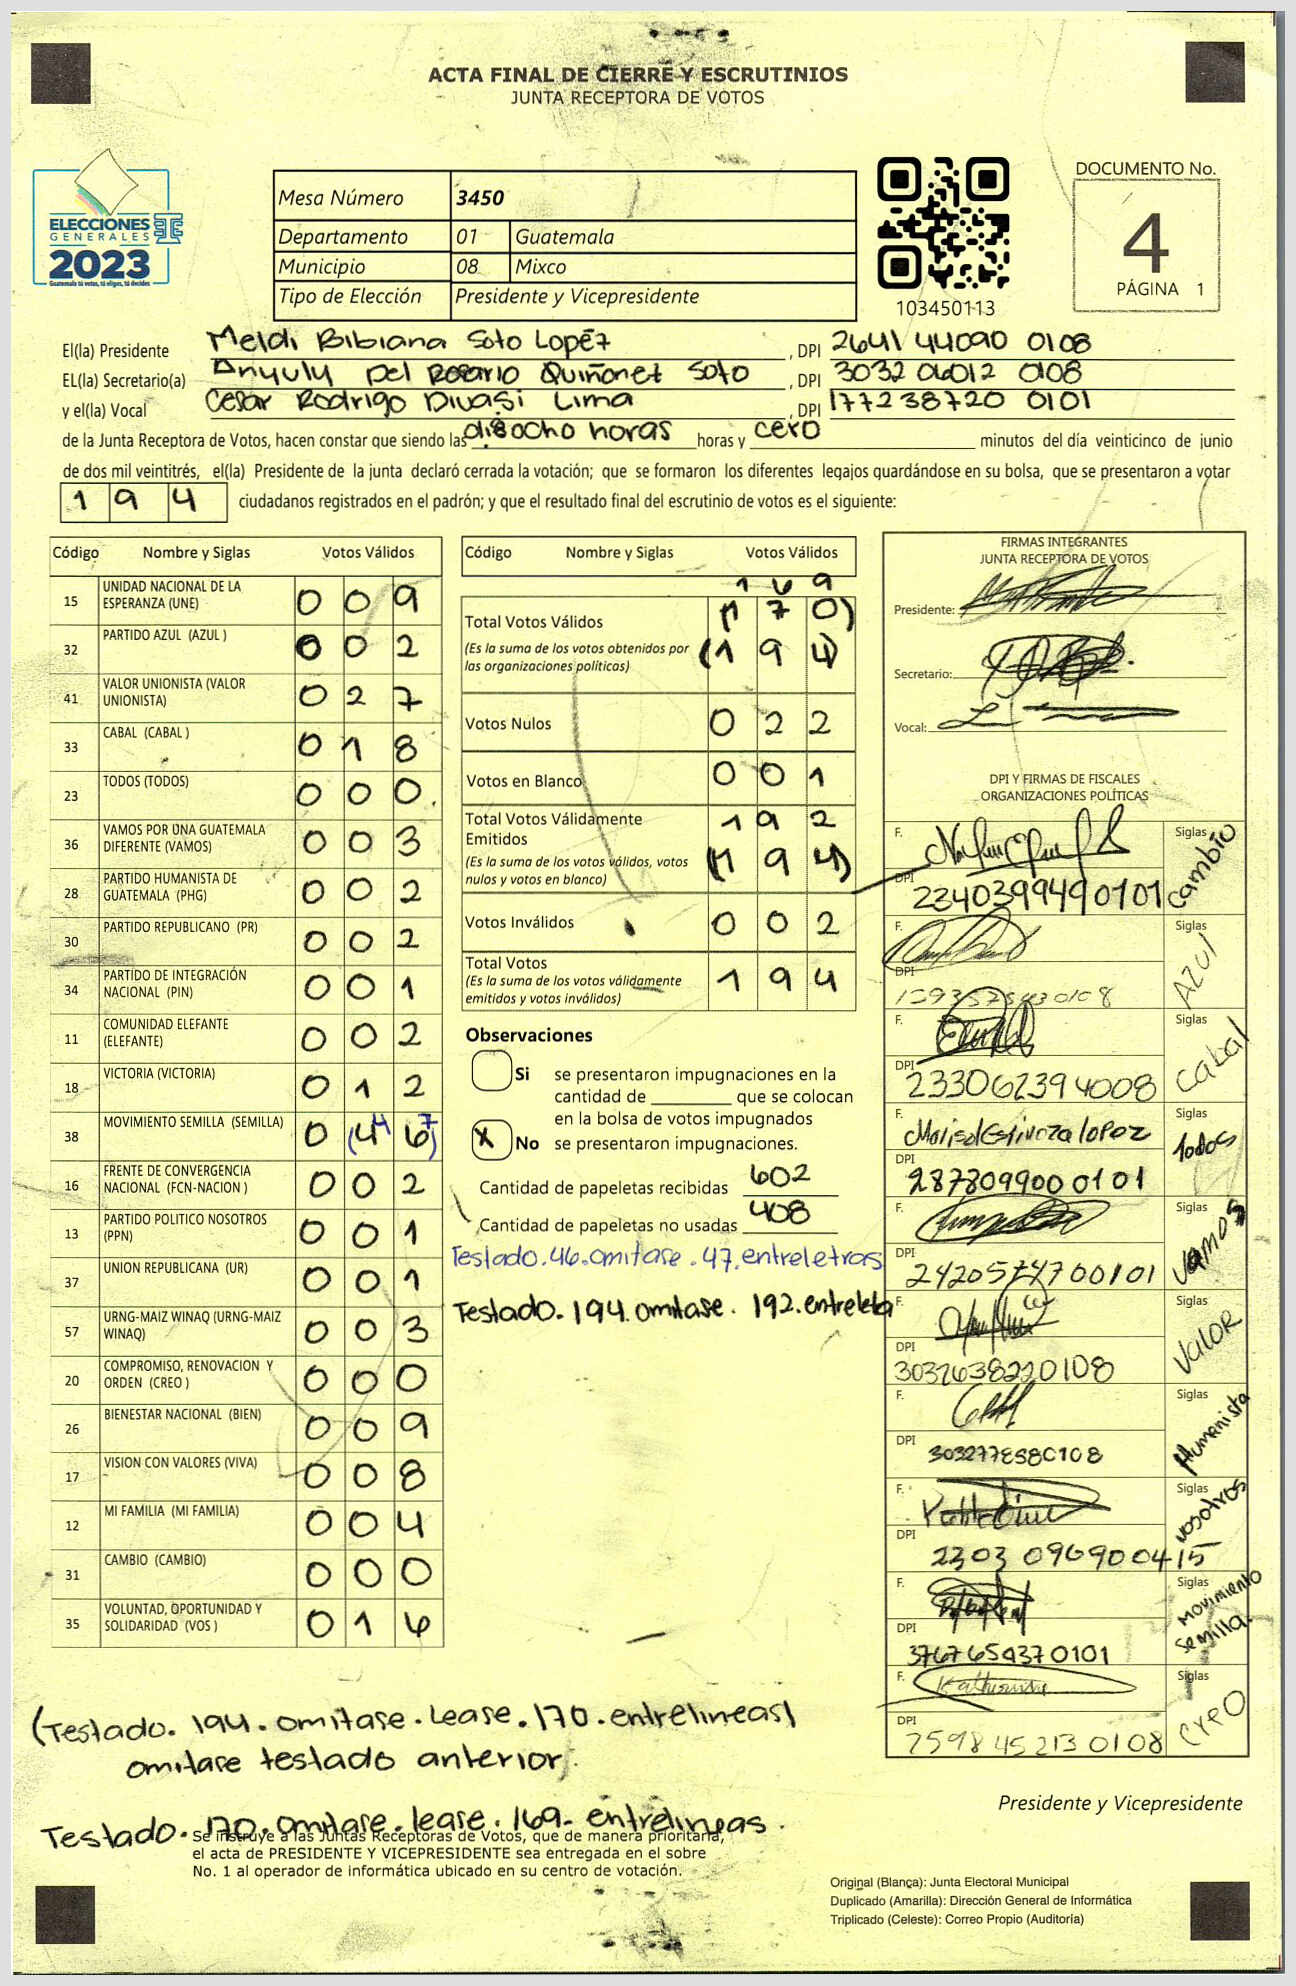 ACTA FINAL DE CIERRE Y ESCRUTINIOS
JUNTA RECEPTORA DE VOTOS
ELECCIONES
GENERALES
2023
Guatemala tú votas, tú eliges, tú decides
Mesa Número 3450
Departamento 01 Guatemala
Municipio 08 Mixco
Tipo de Elección Presidente y Vicepresidente
103450113
DOCUMENTO No.
4
PÁGINA 1
El(la) Presidente Meldi Bibiana Soto Lopéz, DPI 2641 44090 0108
EL(la) Secretario(a) Anyuly Del Rosario Quiñonet Soto, DPI 3032 06012 0108
y el(la) Vocal Cesar Rodrigo Divasi Lima, DPI 177238720 0101
de la Junta Receptora de Votos, hacen constar que siendo las dieocho horas horas y cero minutos del día veinticinco de junio
de dos mil veintitrés, el(la) Presidente de la junta declaró cerrada la votación; que se formaron los diferentes legajos guardándose en su bolsa, que se presentaron a votar
194 ciudadanos registrados en el padrón; y que el resultado final del escrutinio de votos es el siguiente:
Código Nombre y Siglas Votos Válidos
15 UNIDAD NACIONAL DE LA ESPERANZA (UNE) 0 0 9
32 PARTIDO AZUL (AZUL ) 0 0 2
41 VALOR UNIONISTA (VALOR UNIONISTA) 0 2 7
33 CABAL (CABAL ) 0 1 8
23 TODOS (TODOS) 0 0 0
36 VAMOS POR UNA GUATEMALA DIFERENTE (VAMOS) 0 0 3
28 PARTIDO HUMANISTA DE GUATEMALA (PHG) 0 0 2
30 PARTIDO REPUBLICANO (PR) 0 0 2
34 PARTIDO DE INTEGRACIÓN NACIONAL (PIN) 0 0 1
11 COMUNIDAD ELEFANTE (ELEFANTE) 0 0 2
18 VICTORIA (VICTORIA) 0 1 2
38 MOVIMIENTO SEMILLA (SEMILLA) 0 (4 6) 4 7
16 FRENTE DE CONVERGENCIA NACIONAL (FCN-NACION ) 0 0 2
13 PARTIDO POLITICO NOSOTROS (PPN) 0 0 1
37 UNION REPUBLICANA (UR) 0 0 1
57 URNG-MAIZ WINAQ (URNG-MAIZ WINAQ) 0 0 3
20 COMPROMISO, RENOVACION Y ORDEN (CREO ) 0 0 0
26 BIENESTAR NACIONAL (BIEN) 0 0 9
17 VISION CON VALORES (VIVA) 0 0 8
12 MI FAMILIA (MI FAMILIA) 0 0 4
31 CAMBIO (CAMBIO) 0 0 0
35 VOLUNTAD, OPORTUNIDAD Y SOLIDARIDAD (VOS ) 0 1 6
Código Nombre y Siglas Votos Válidos
1 6 9
Total Votos Válidos (1 7 0)
(Es la suma de los votos obtenidos por las organizaciones políticas) (1 9 4)
Votos Nulos 0 2 2
Votos en Blanco 0 0 1
Total Votos Válidamente Emitidos 1 9 2
(Es la suma de los votos válidos, votos nulos y votos en blanco) (1 9 4)
Votos Inválidos 0 0 2
Total Votos 1 9 4
(Es la suma de los votos válidamente emitidos y votos inválidos)
Observaciones
Si se presentaron impugnaciones en la
cantidad de ________ que se colocan
en la bolsa de votos impugnados
X No se presentaron impugnaciones.
Cantidad de papeletas recibidas 602
Cantidad de papeletas no usadas 408
Testado.46.omitase.47.entreletras
Testado.194.omitase.192.entreleta
FIRMAS INTEGRANTES
JUNTA RECEPTORA DE VOTOS
Presidente:
Secretario:
Vocal:
DPI Y FIRMAS DE FISCALES
ORGANIZACIONES POLÍTICAS
F. Siglas cambio
DPI 2340399490101
F. Siglas AZUL
DPI
F. Siglas Cabal
DPI 233062394008
F. Marisol Espinoza lopez Siglas todos
DPI 287809900 0101
F. Siglas Vamos
DPI 2420574700101
F. Siglas VALOR
DPI 3032638220108
F. Siglas Humanista
DPI 3032778580108
F. Siglas Nosotros
DPI 2303 096900415
F. Siglas Movimiento Semilla
DPI 3767654370101
F. Katherinne Siglas creo
DPI 7598 45213 0108
(Testado.194.omitase.Lease.170.entrelineas)
omitase testado anterior.
Testado.170.omitase.lease.169.entrelineas.
Presidente y Vicepresidente
Se instruye a las Juntas Receptoras de Votos, que de manera prioritaria,
el acta de PRESIDENTE Y VICEPRESIDENTE sea entregada en el sobre
No. 1 al operador de informática ubicado en su centro de votación.
Original (Blanca): Junta Electoral Municipal
Duplicado (Amarilla): Dirección General de Informática
Triplicado (Celeste): Correo Propio (Auditoría)